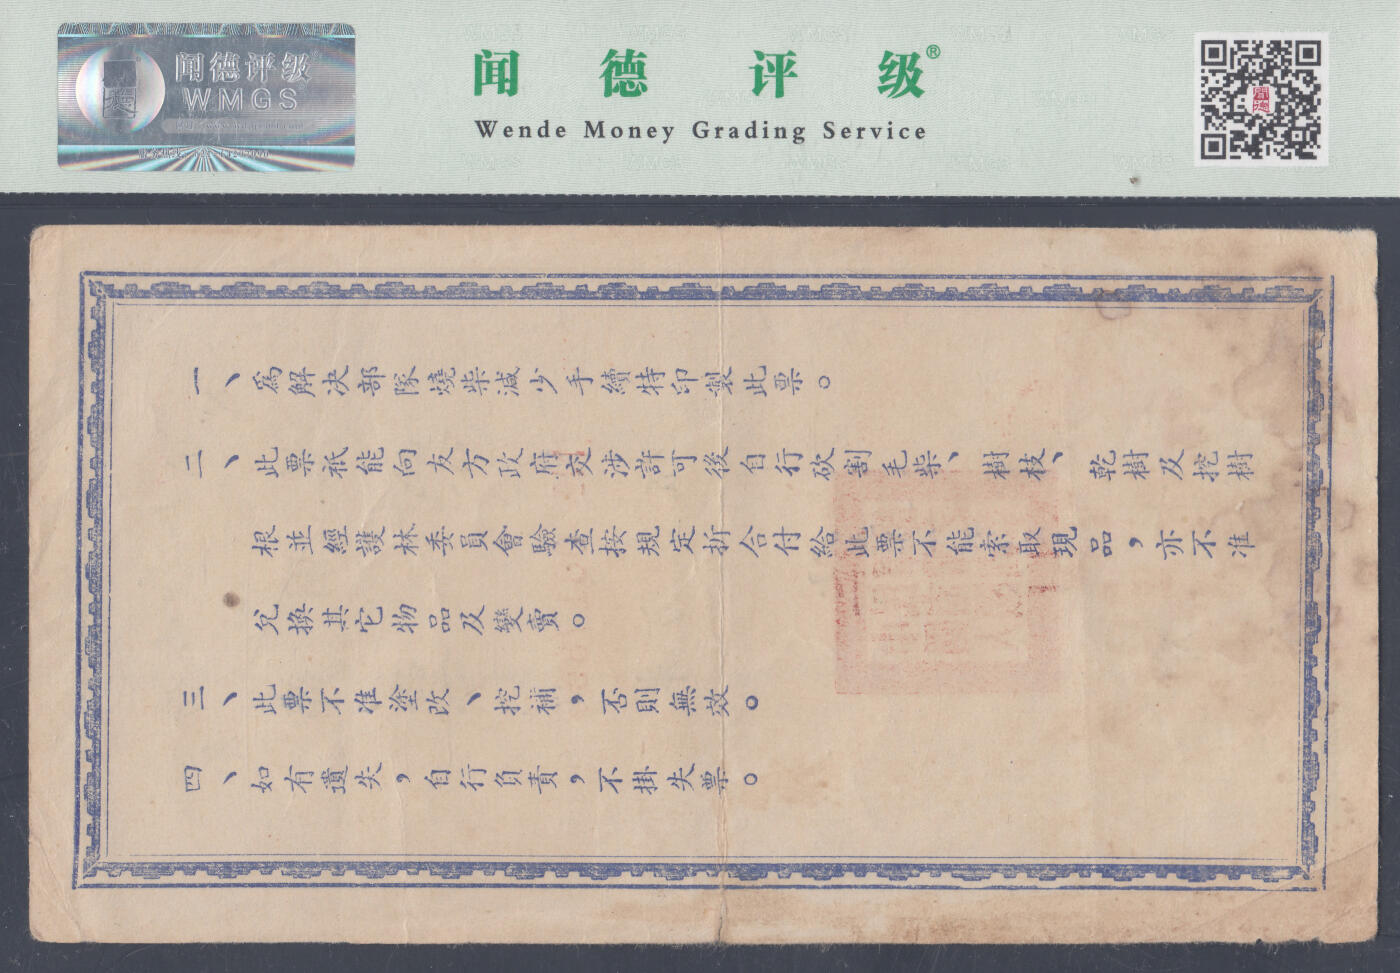 闻德评级®
WMGS
闻德评级®
Wende Money Grading Service
一、為解決部隊燒柴減少手續特印製此票。
二、此票祇能向友方政府交涉許可後自行砍割毛柴、樹枝、乾樹及挖樹
根並經護林委員會驗查按規定折合付給此票不能索取現品，亦不准
兌換其它物品及變賣。
三、此票不准塗改、挖補，否則無效。
四、如有遺失，自行負責，不掛失票。